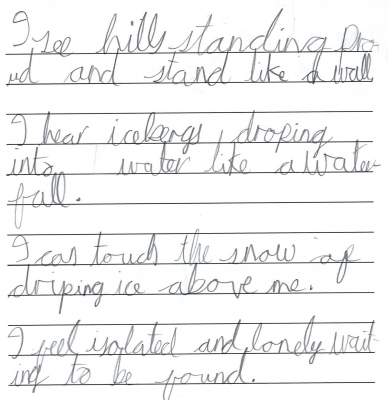 I see hills standing Pro-
ud and stand like a wall
I hear icebergs droping
into water like a water-
fall.
I can touch the snow of
driping ice above me.
I feel isolated and lonely wait-
ing to be found.